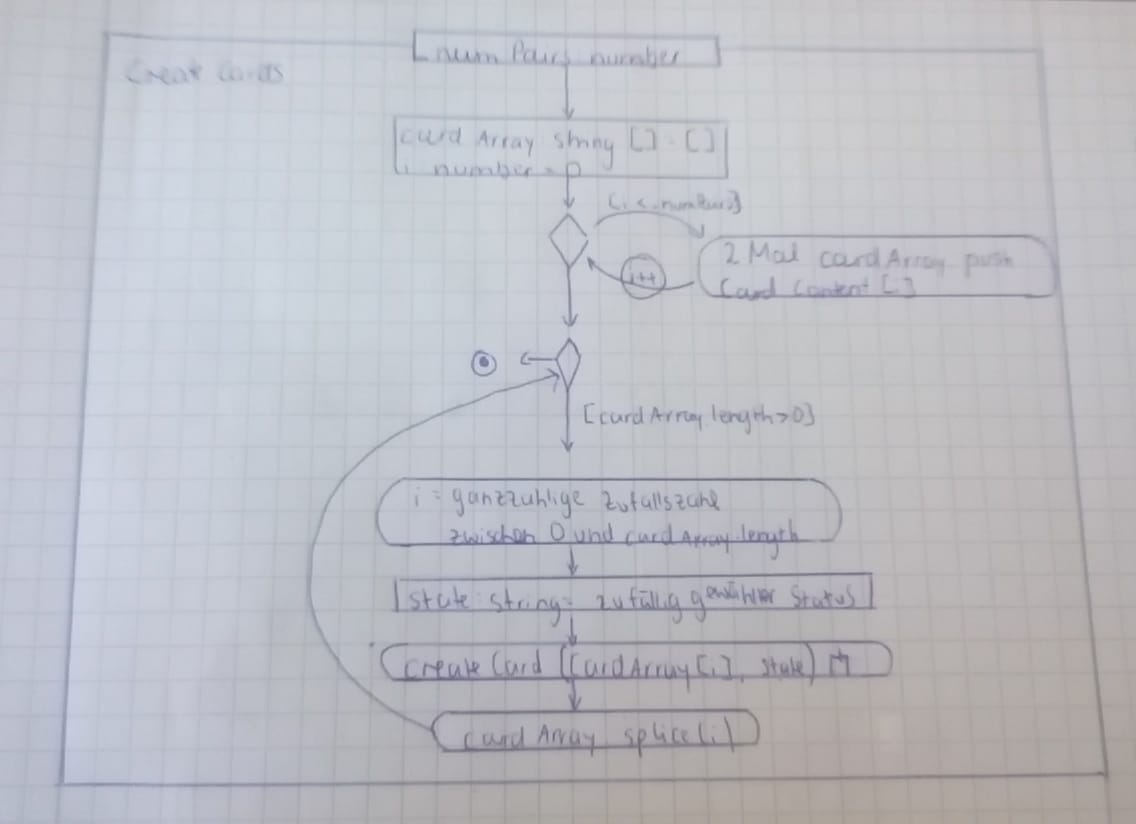 num Pairs number
Create Cards
card Array string [] = []
i number = 0
[i <
2 Mal cardArray push
Card Content [i]
i++
[cardArray length>0]
i = ganzzahlige Zufallszahl
zwischen 0 und cardArray.length
state: string = zufällig gewählter Status
create Card (CardArray[i], state)
card Array splice(i)